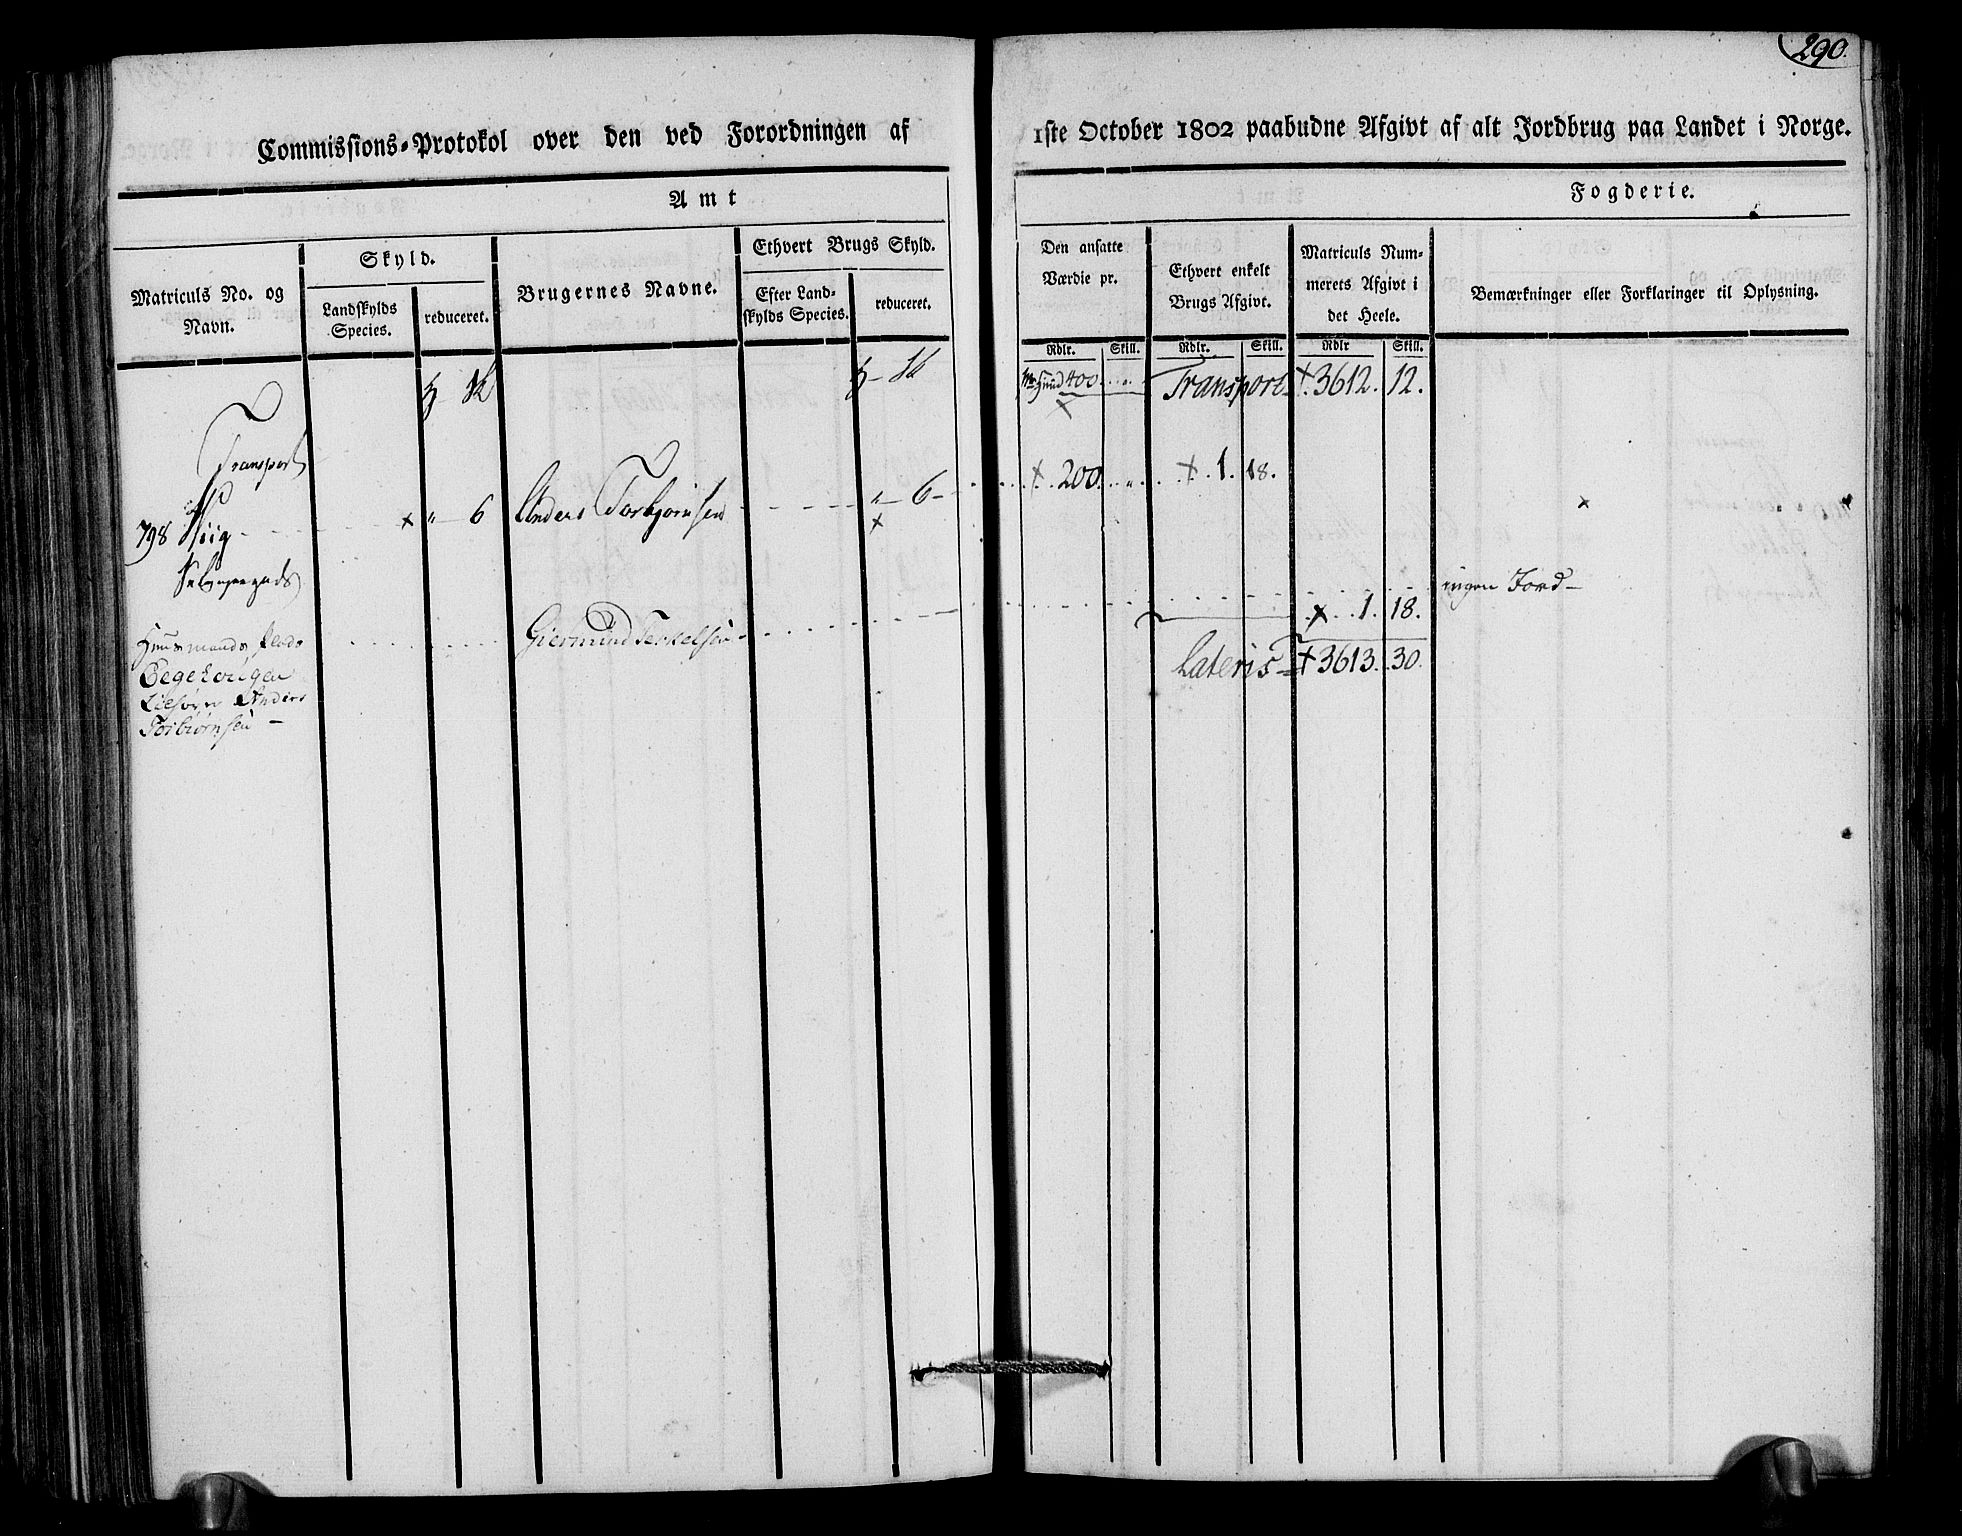 290.
Commissions-Protokol over den ved Forordningen af
1ste October 1802 paabudne Afgivt af alt Jordbrug paa Landet i Norge.
Amt
Fogderie.
Matriculs No. og Navn.
Skyld.
Landskylds Species.
reduceret.
Brugernes Navne.
Ethvert Brugs Skyld.
Efter Landskylds Species.
reduceret.
Den ansatte Værdie pr.
Ethvert enkelt Brugs Afgivt.
Matriculs Nummerets Afgivt i det Heele.
Bemærkninger eller Forklaringer til Oplysning.
Rdlr. Skill. Rdlr. Skill. Rdlr Skill.
400 Transport 3612. 12.
Transport
798 " 6 Anders Torbjørnsen " 6 200 1. 18.
Husmands Plads Giermund Terkelsen ingen Jord
1. 18.
Lateris 3613. 30.
Anders
Torbiørnsen